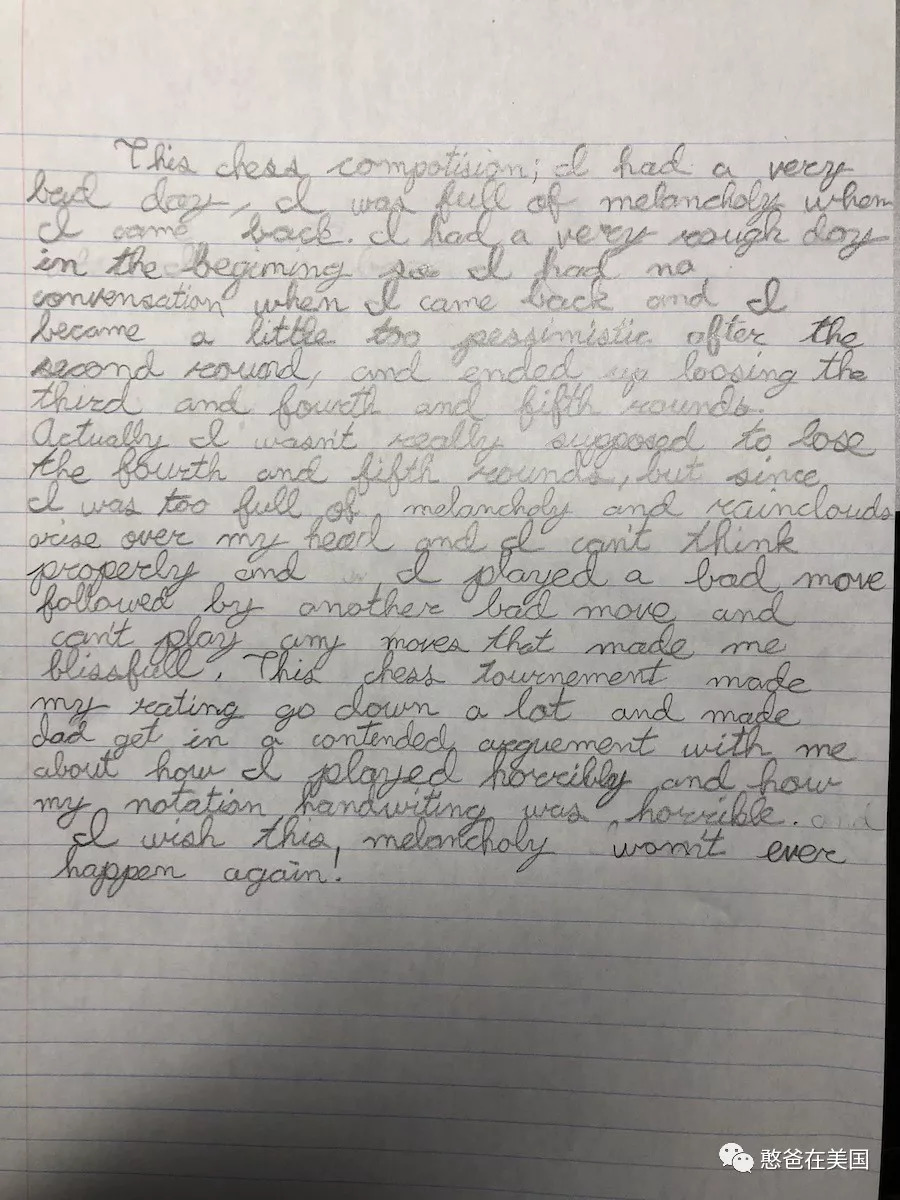 This chess compotision; I had a very
bad day, I was full of melancholy when
I came back. I had a very rough day
in the beginning so I had no
convensation when I came back and I
became a little too pessimistic after the
second round, and ended up loosing the
third and fourth and fifth rounds.
Actually I wasn't really supposed to lose
the fourth and fifth rounds, but since
I was too full of melancholy and rainclouds
arise over my head and I can't think
properly and I played a bad move
followed by another bad move and
can't play any moves that made me
blissfull. This chess tournement made
my rating go down a lot and made
dad get in a contended arguement with me
about how I played horribly and how
my notation handwriting was horrible. and
I wish this melancholy won't ever
happen again!
憨爸在美国